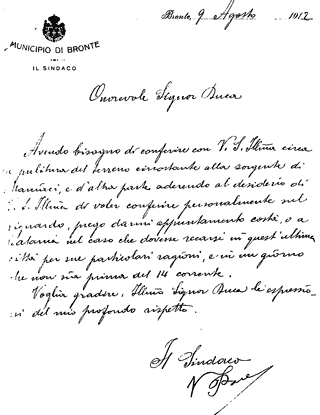 Bronte, 9 Agosto 1912
MUNICIPIO DI BRONTE
IL SINDACO
Onorevole Signor Duca
Avendo bisogno di conferire con V. S. Illma circa
pulitura del terreno circostante alla sorgente di
Maniaci, e d'altra parte aderendo al desiderio di
S. Illma di voler conferire personalmente sul
riguardo, prego darmi appuntamento costì, o a
Catania nel caso che dovesse recarsi in quest'ultima
città per sue particolari ragioni, e in un giorno
che non sia prima del 14 corrente.
Voglia gradire, Illmo Signor Duca le espressio-
ni del mio profondo rispetto.
Il Sindaco